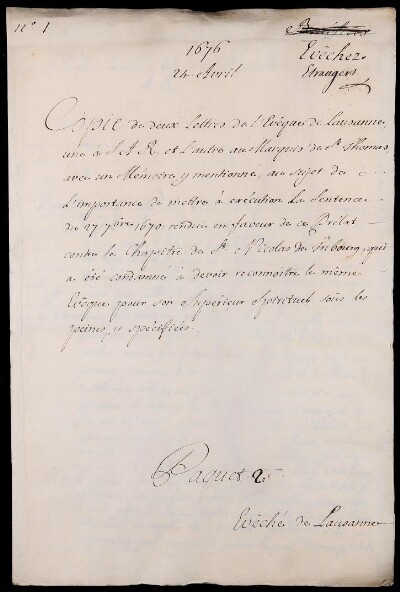 n.º 1
1676
24. Avril
Evêchez
Etrangers
Copie de deux Lettres de l'Evêque de Lausanne,
une à S. A. R. et l'autre au Marquis de St Thomas
avec un Mémoire y mentionné, au sujet de
l'importance de mettre à exécution la Sentence
du 27. 7bre 1670. rendue en faveur de ce Prélat
contre le Chapitre de St Nicolas de Fribourg, qui
a été condamné à devoir reconnoitre le même
Evêque pour son Supérieur Spirituel sous les
peines, y spécifiées.
Paquet 2.
Evêché de Lausanne